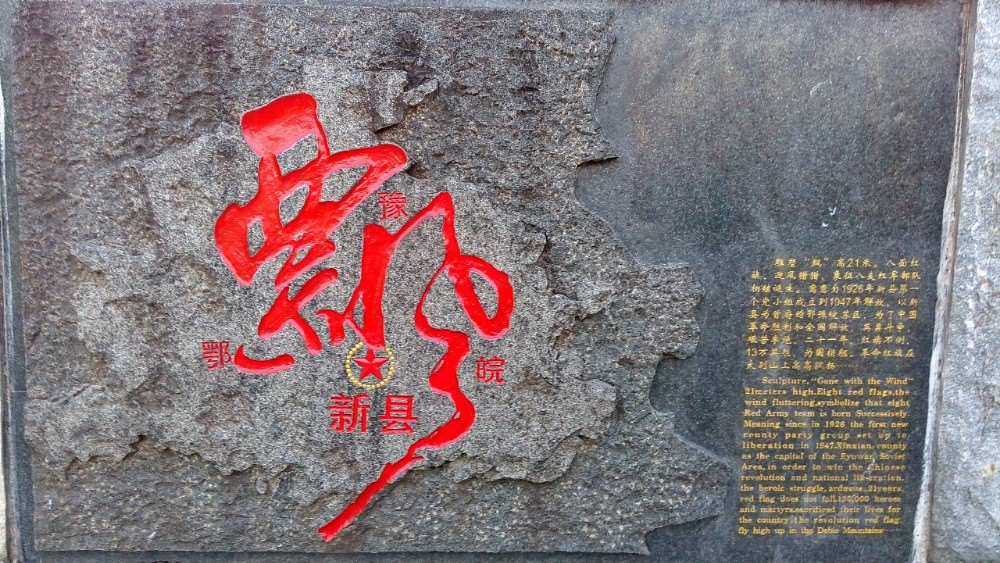 飘
豫
鄂
皖
新县
雕塑“飘”高21米。八面红
旗，迎风猎猎，象征八支红军部队
相继诞生。寓意为1926年新县第一
个党小组成立到1947年解放，以新
县为首府的鄂豫皖苏区，为了中国
革命胜利和全国解放，英勇斗争，
艰苦卓绝，二十一年，红旗不倒，
13万英烈，为国捐躯。革命红旗在
大别山上高高飘扬……
Sculpture, "Gone with the Wind"
21meters high.Eight red flags,the
wind fluttering,symbolize that eight
Red Army team is born Successively.
Meaning since in 1926 the first new
county party group set up to
liberation in 1947.Xinxian county
as the capital of the Eyuwan Soviet
Area, in order to win the Chinese
revolution and national lib-eration,
the heroic struggle, arduous, 21years,
red flag does not fall,130,000 heroes
and martyrs,sacrificed their lives for
the country,the revolution red flag
fly high up in the Dabie Mountains ……